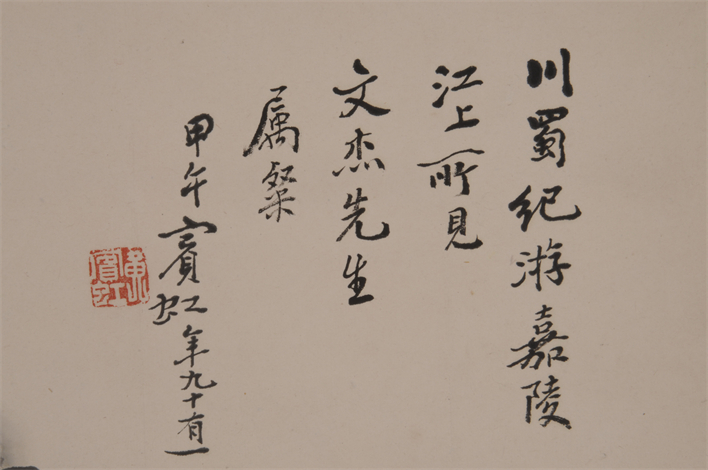 川蜀纪游嘉陵
江上所見
文杰先生
属粲
甲午賓虹年九十有一
黃賓虹